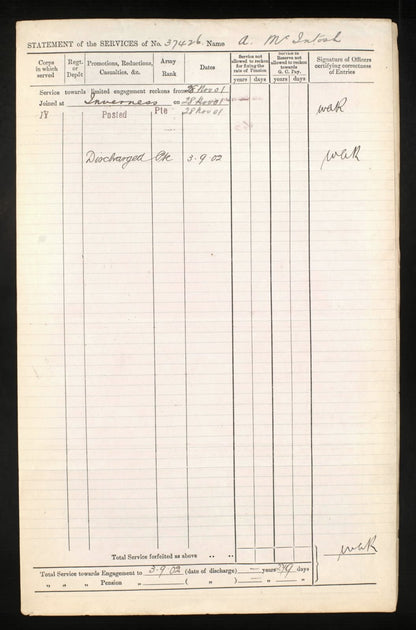 STATEMENT of the SERVICES of No. 37426 Name A. McIntosh
Corps in which served
Regt. or Depôt
Promotions, Reductions, Casualties, &c.
Army Rank
Dates
Service not allowed to reckon for fixing the rate of Pension
years days
Service in Reserve not allowed to reckon towards G. C. Pay.
years days
Signature of Officers certifying correctness of Entries
Service towards limited engagement reckons from 28 Nov 01
Joined at Inverness on 28 Nov 01
IY Posted Pte 28 Nov 01
Discharged 3·9·02
Total Service forfeited as above .. ..
Total Service towards Engagement to 3·9·02 (date of discharge) — years 279 days
" " " Pension " ( " " ) " "